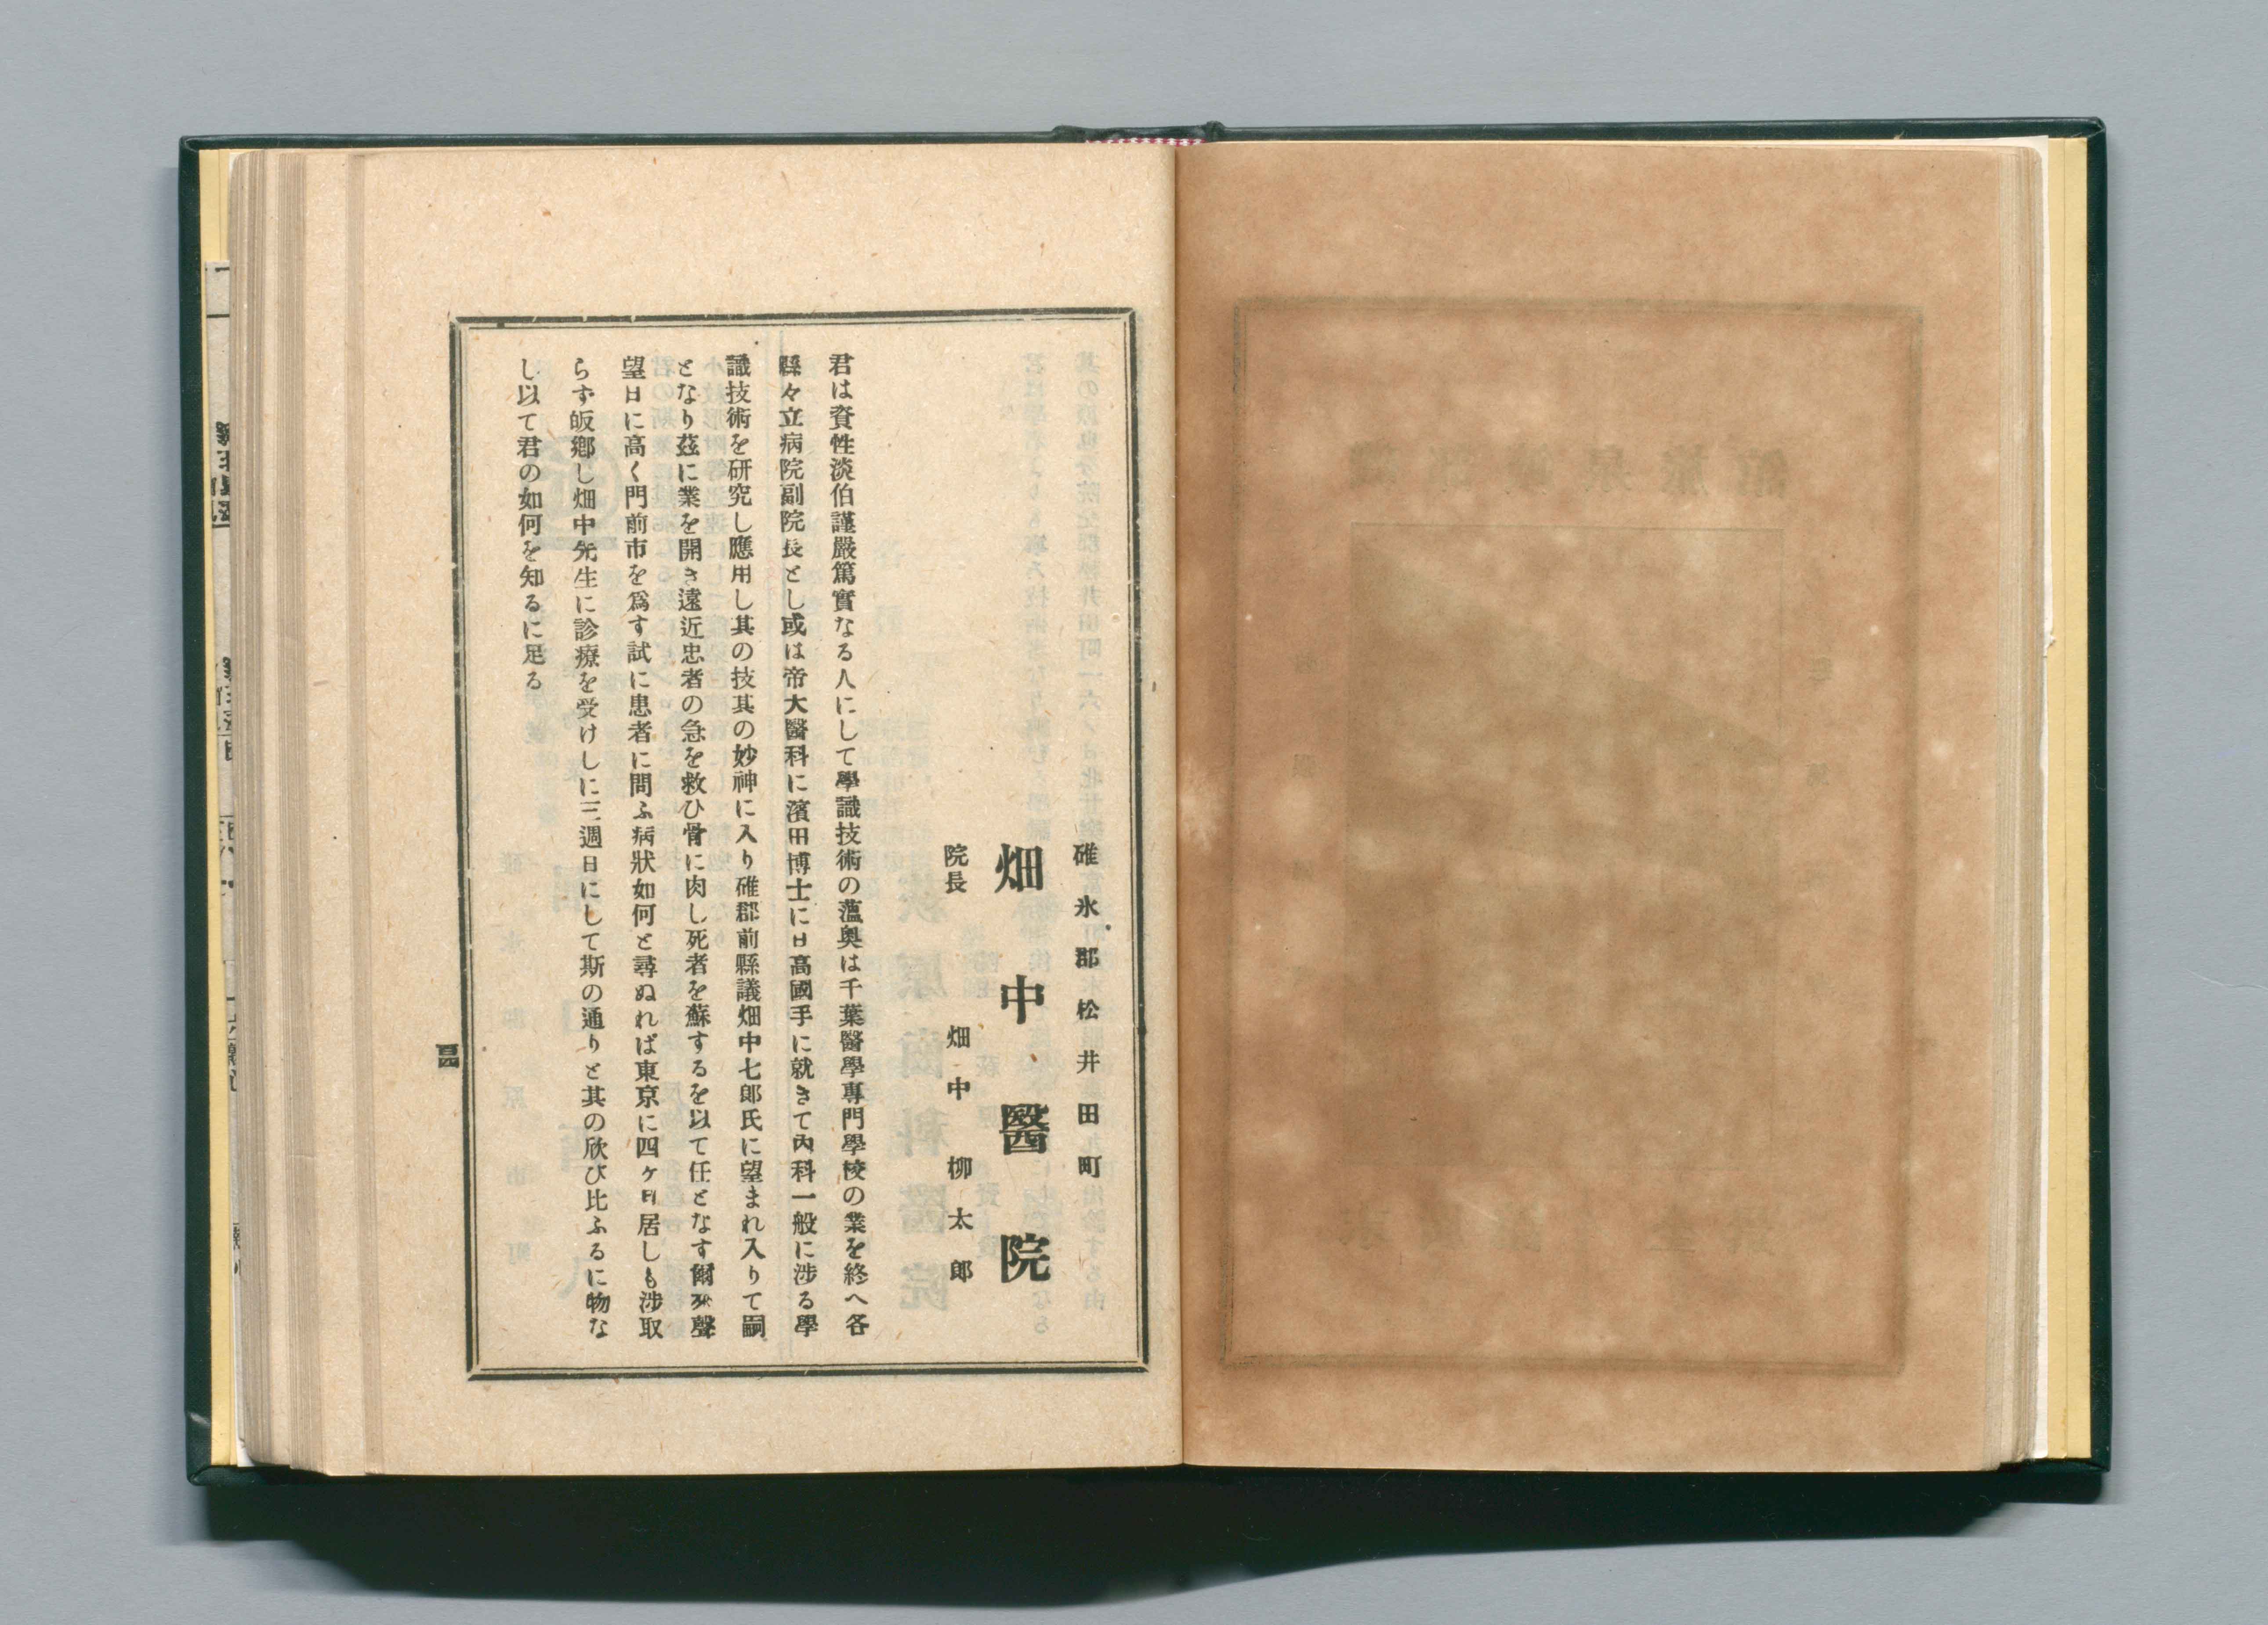 碓氷郡松井田町
畑中醫院
院長　畑中柳太郎
君は資性淡伯謹嚴篤實なる人にして學識技術の薀奥は千葉醫學專門學校の業を終へ各
縣々立病院副院長とし或は帝大醫科に濱田博士に日高國手に就きて內科一般に渉る學
識技術を硏究し應用し其の技其の妙神に入り碓郡前縣議畑中七郞氏に望まれ入りて嗣
となり茲に業を開き遠近忠者の急を救ひ骨に肉し死者を蘇するを以て任となす爾來聲
望日に高く門前市を爲す試に患者に問ふ病狀如何と尋ぬれば東京に四ヶ月居しも渉取
らず皈鄕し畑中先生に診療を受けしに三週日にして斯の通りと其の欣び比ふるに物な
し以て君の如何を知るに足る